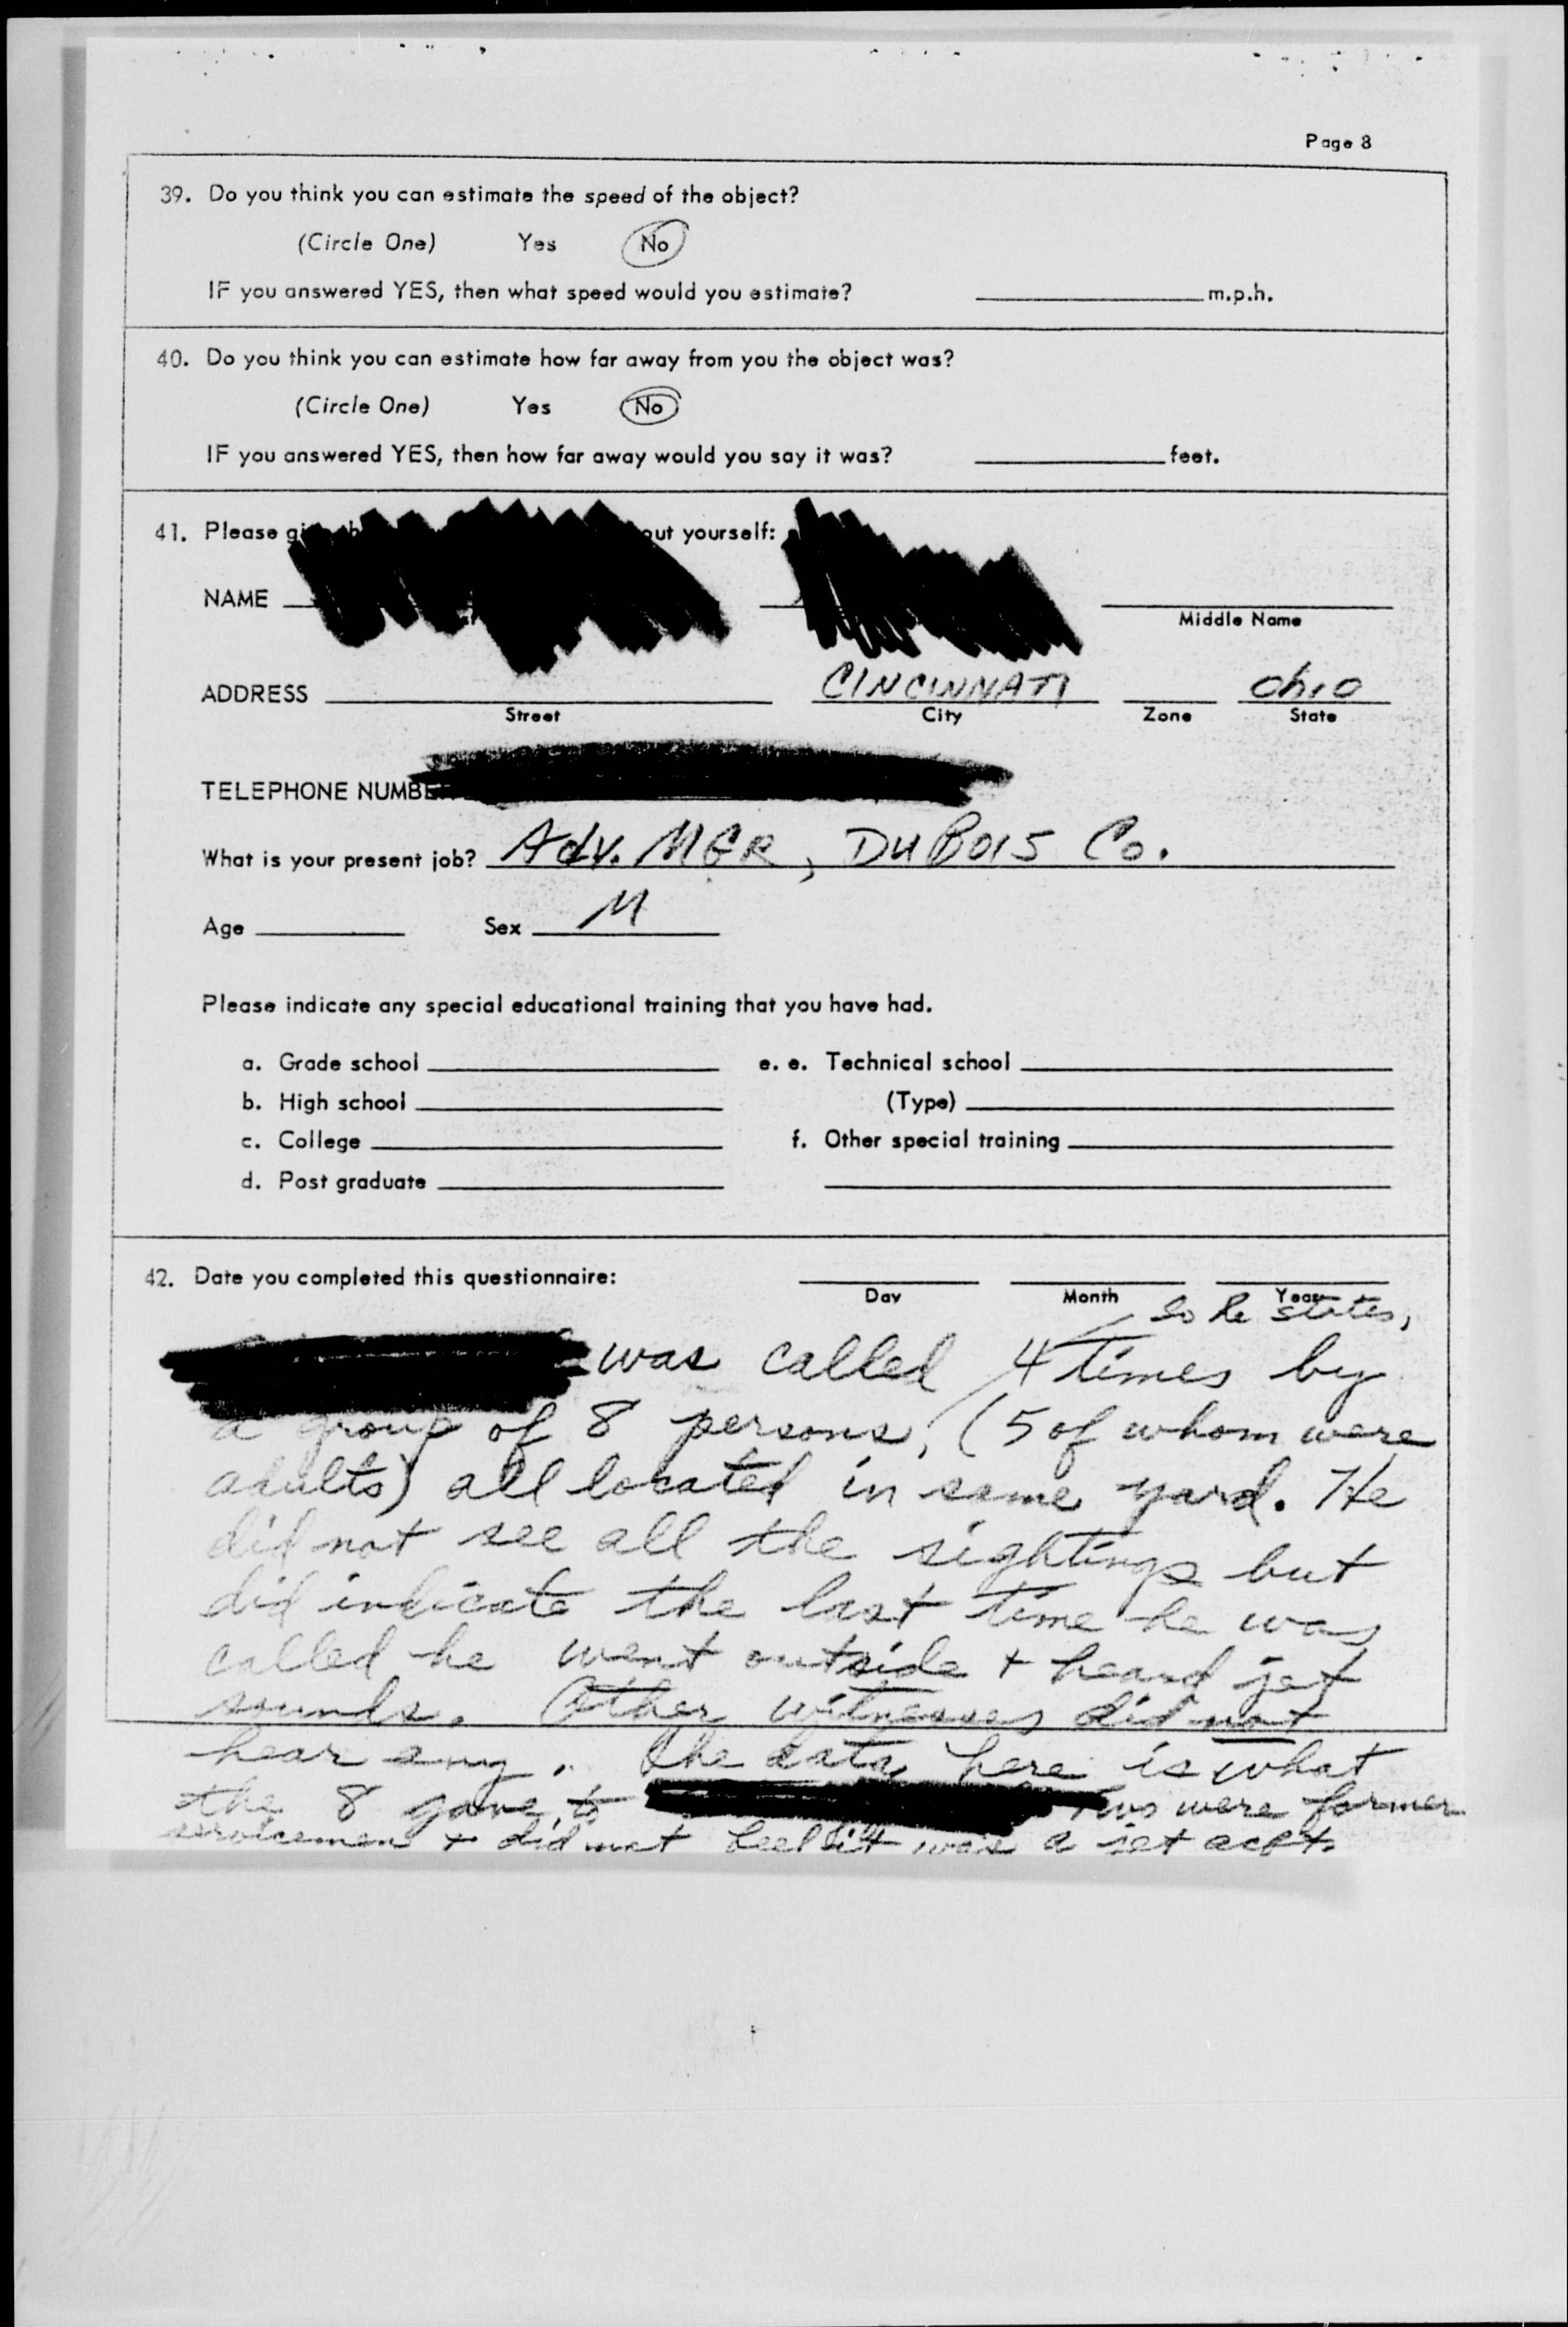 Page 8
39. Do you think you can estimate the speed of the object?
(Circle One) Yes No
IF you answered YES, then what speed would you estimate? m.p.h.
40. Do you think you can estimate how far away from you the object was?
(Circle One) Yes No
IF you answered YES, then how far away would you say it was? feet.
41. Please out yourself:
NAME
Middle Name
ADDRESS CINCINNATI Ohio
Street City Zone State
TELEPHONE NUMBE
What is your present job? Adv. MGR, DUBOIS Co.
Age Sex M
Please indicate any special educational training that you have had.
a. Grade school e. e. Technical school
b. High school (Type)
c. College f. Other special training
d. Post graduate
42. Date you completed this questionnaire:
Day Month Year
so he states,
was called 4 times by
a group of 8 persons, (5 of whom were
adults) all located in same yard. He
did not see all the sightings but
did indicate the last time he was
called he went outside + heard jet
sounds. Other witnesses did not
hear any. The data here is what
the 8 gave to Two were former
servicemen + did not feel it was a jet acft.